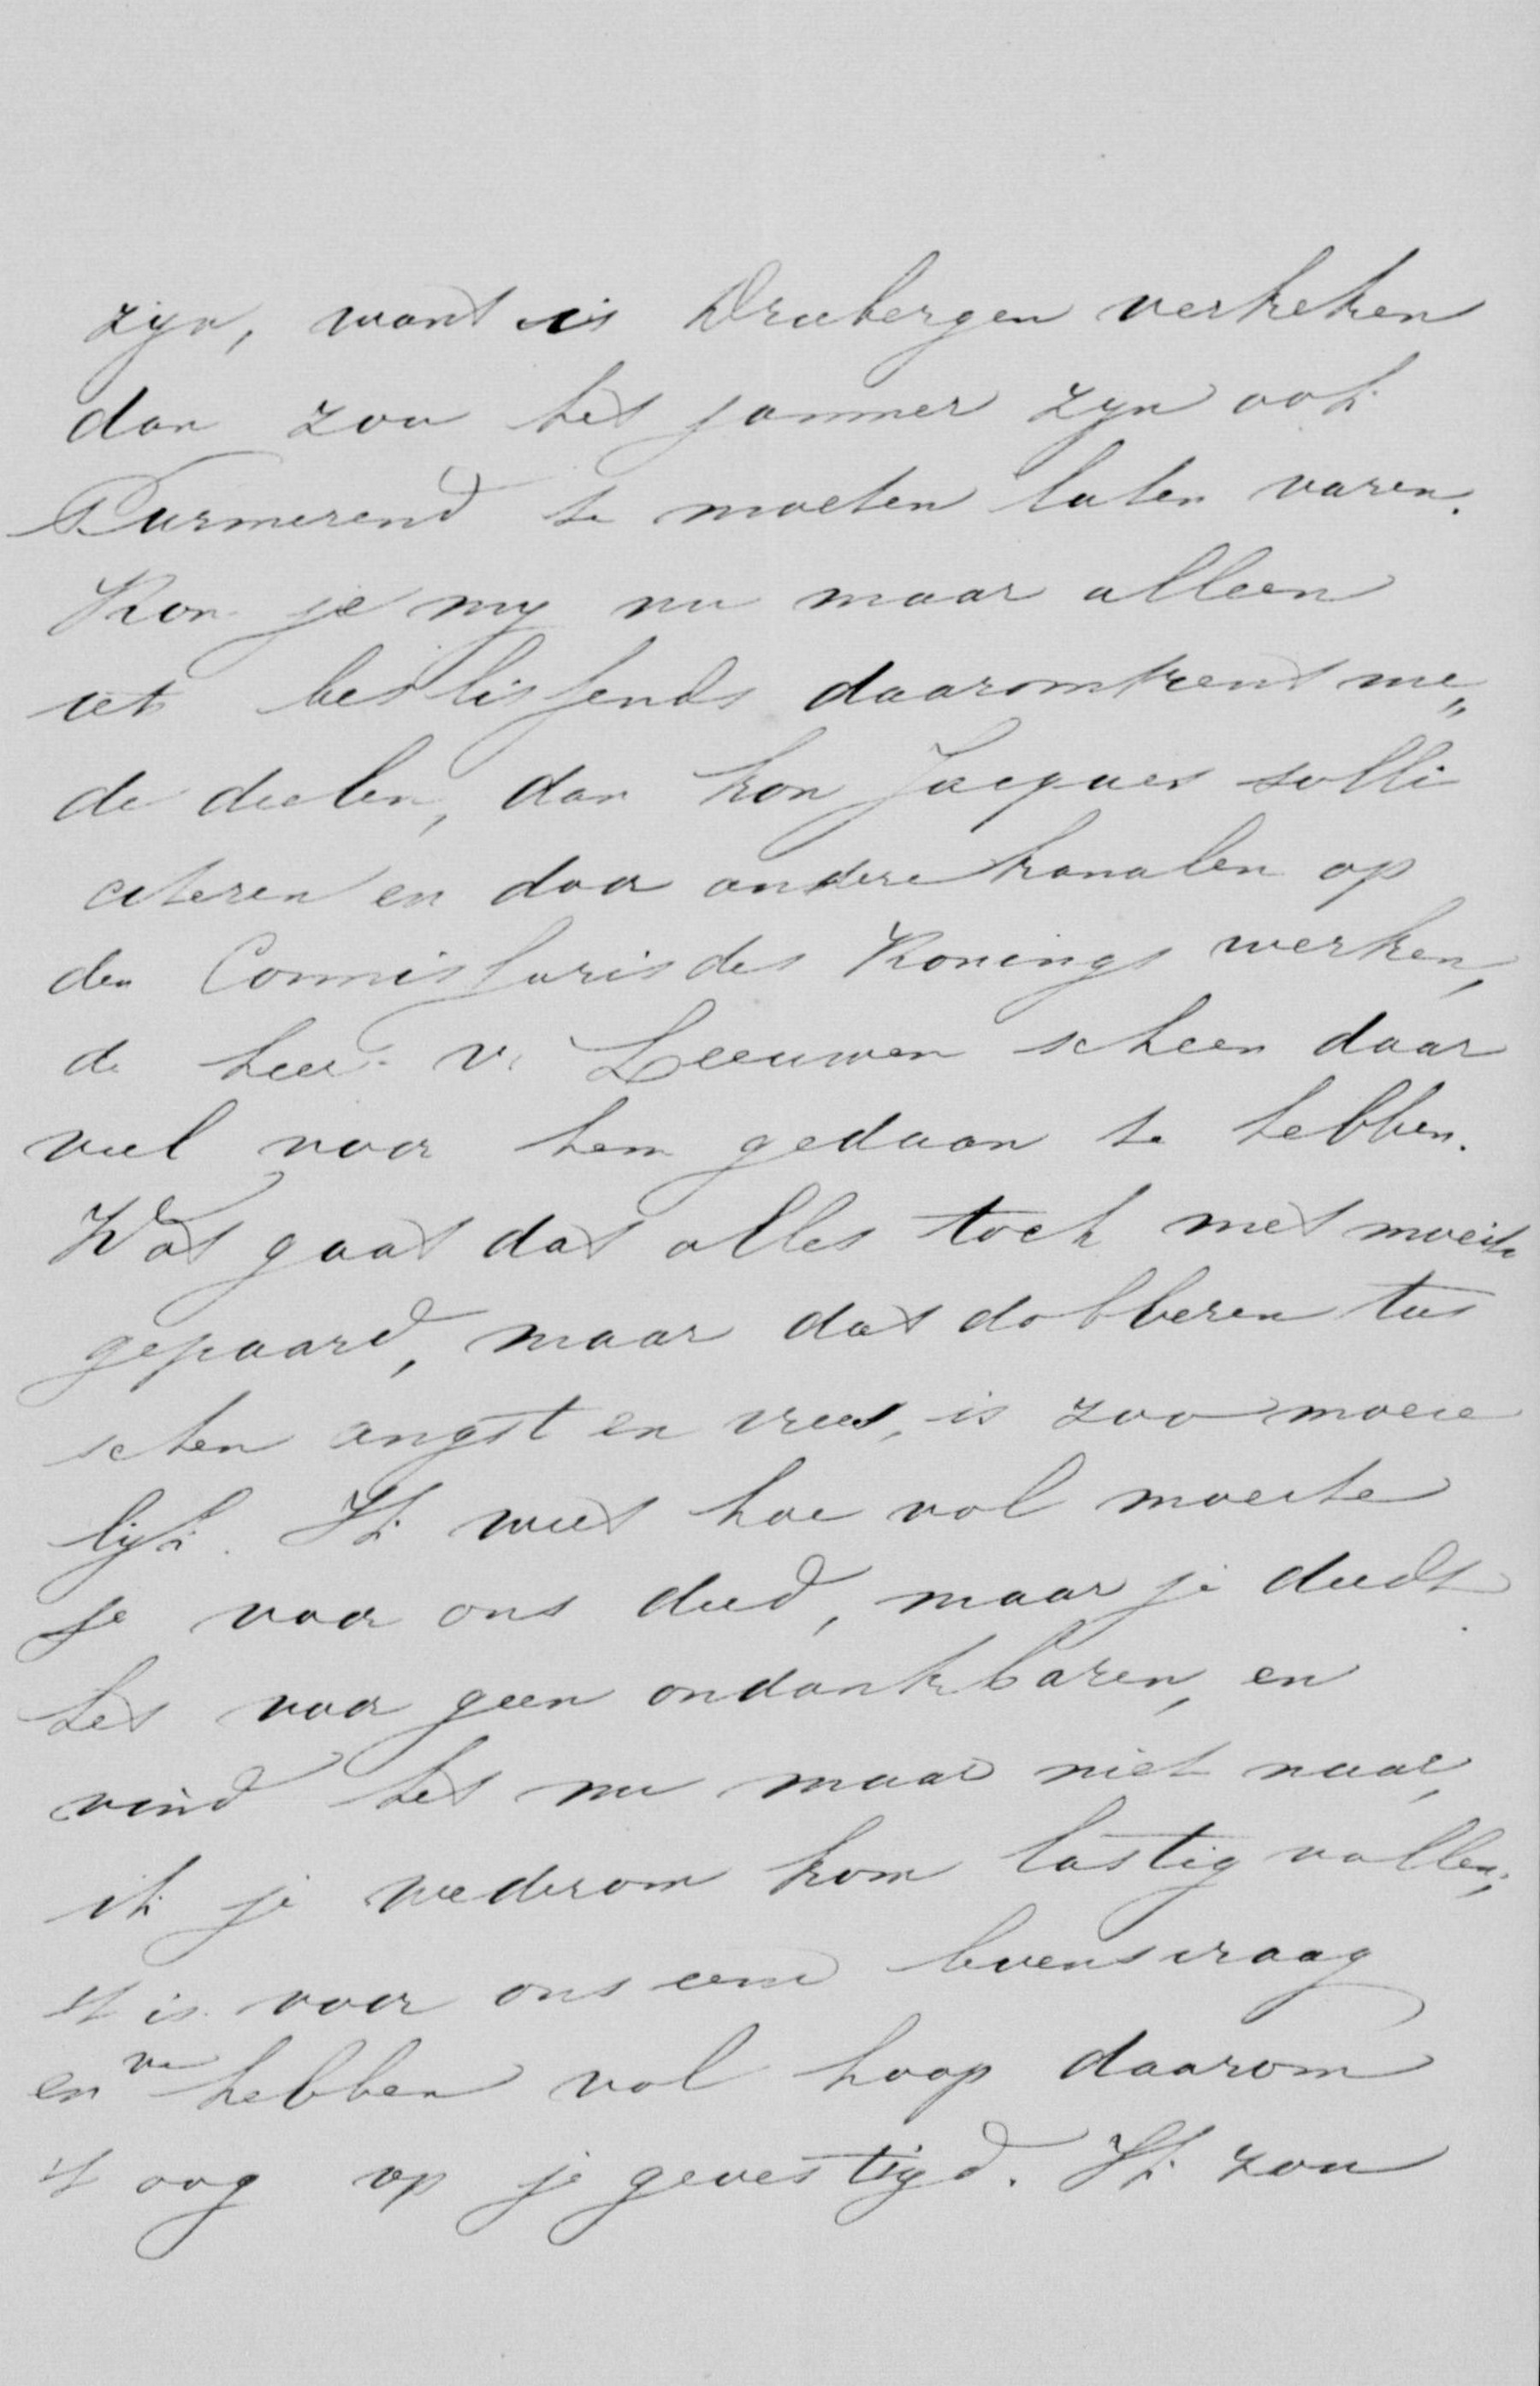 zyn, want is Driebergen verkeken
dan zou het jammer zyn ook
Purmerend te moeten laten varen.
Kon je my nu maar alleen
iets beslissends daaromtrent me„
de deelen, dan kon Jacques solli
citeren en door andere kanalen op
den Commissaris des Konings werken,
de heer v. Leeuwen scheen daar
veel voor hem gedaan te hebben.
Wat gaat dat alles toch met moeite
gepaard, maar dat dobberen tus
schen angst en vrees, is zoo moeie
lijk. Ik weet hoe vol moeite
je voor ons deed, maar je deedt
het voor geen ondankbaren, en
vind het nu maar niet naar,
ik je wederom kom lastig vallen,
't is voor ons eene levensvraag
en we hebben vol hoop daarom
't oog op je gevestigd. Ik zou